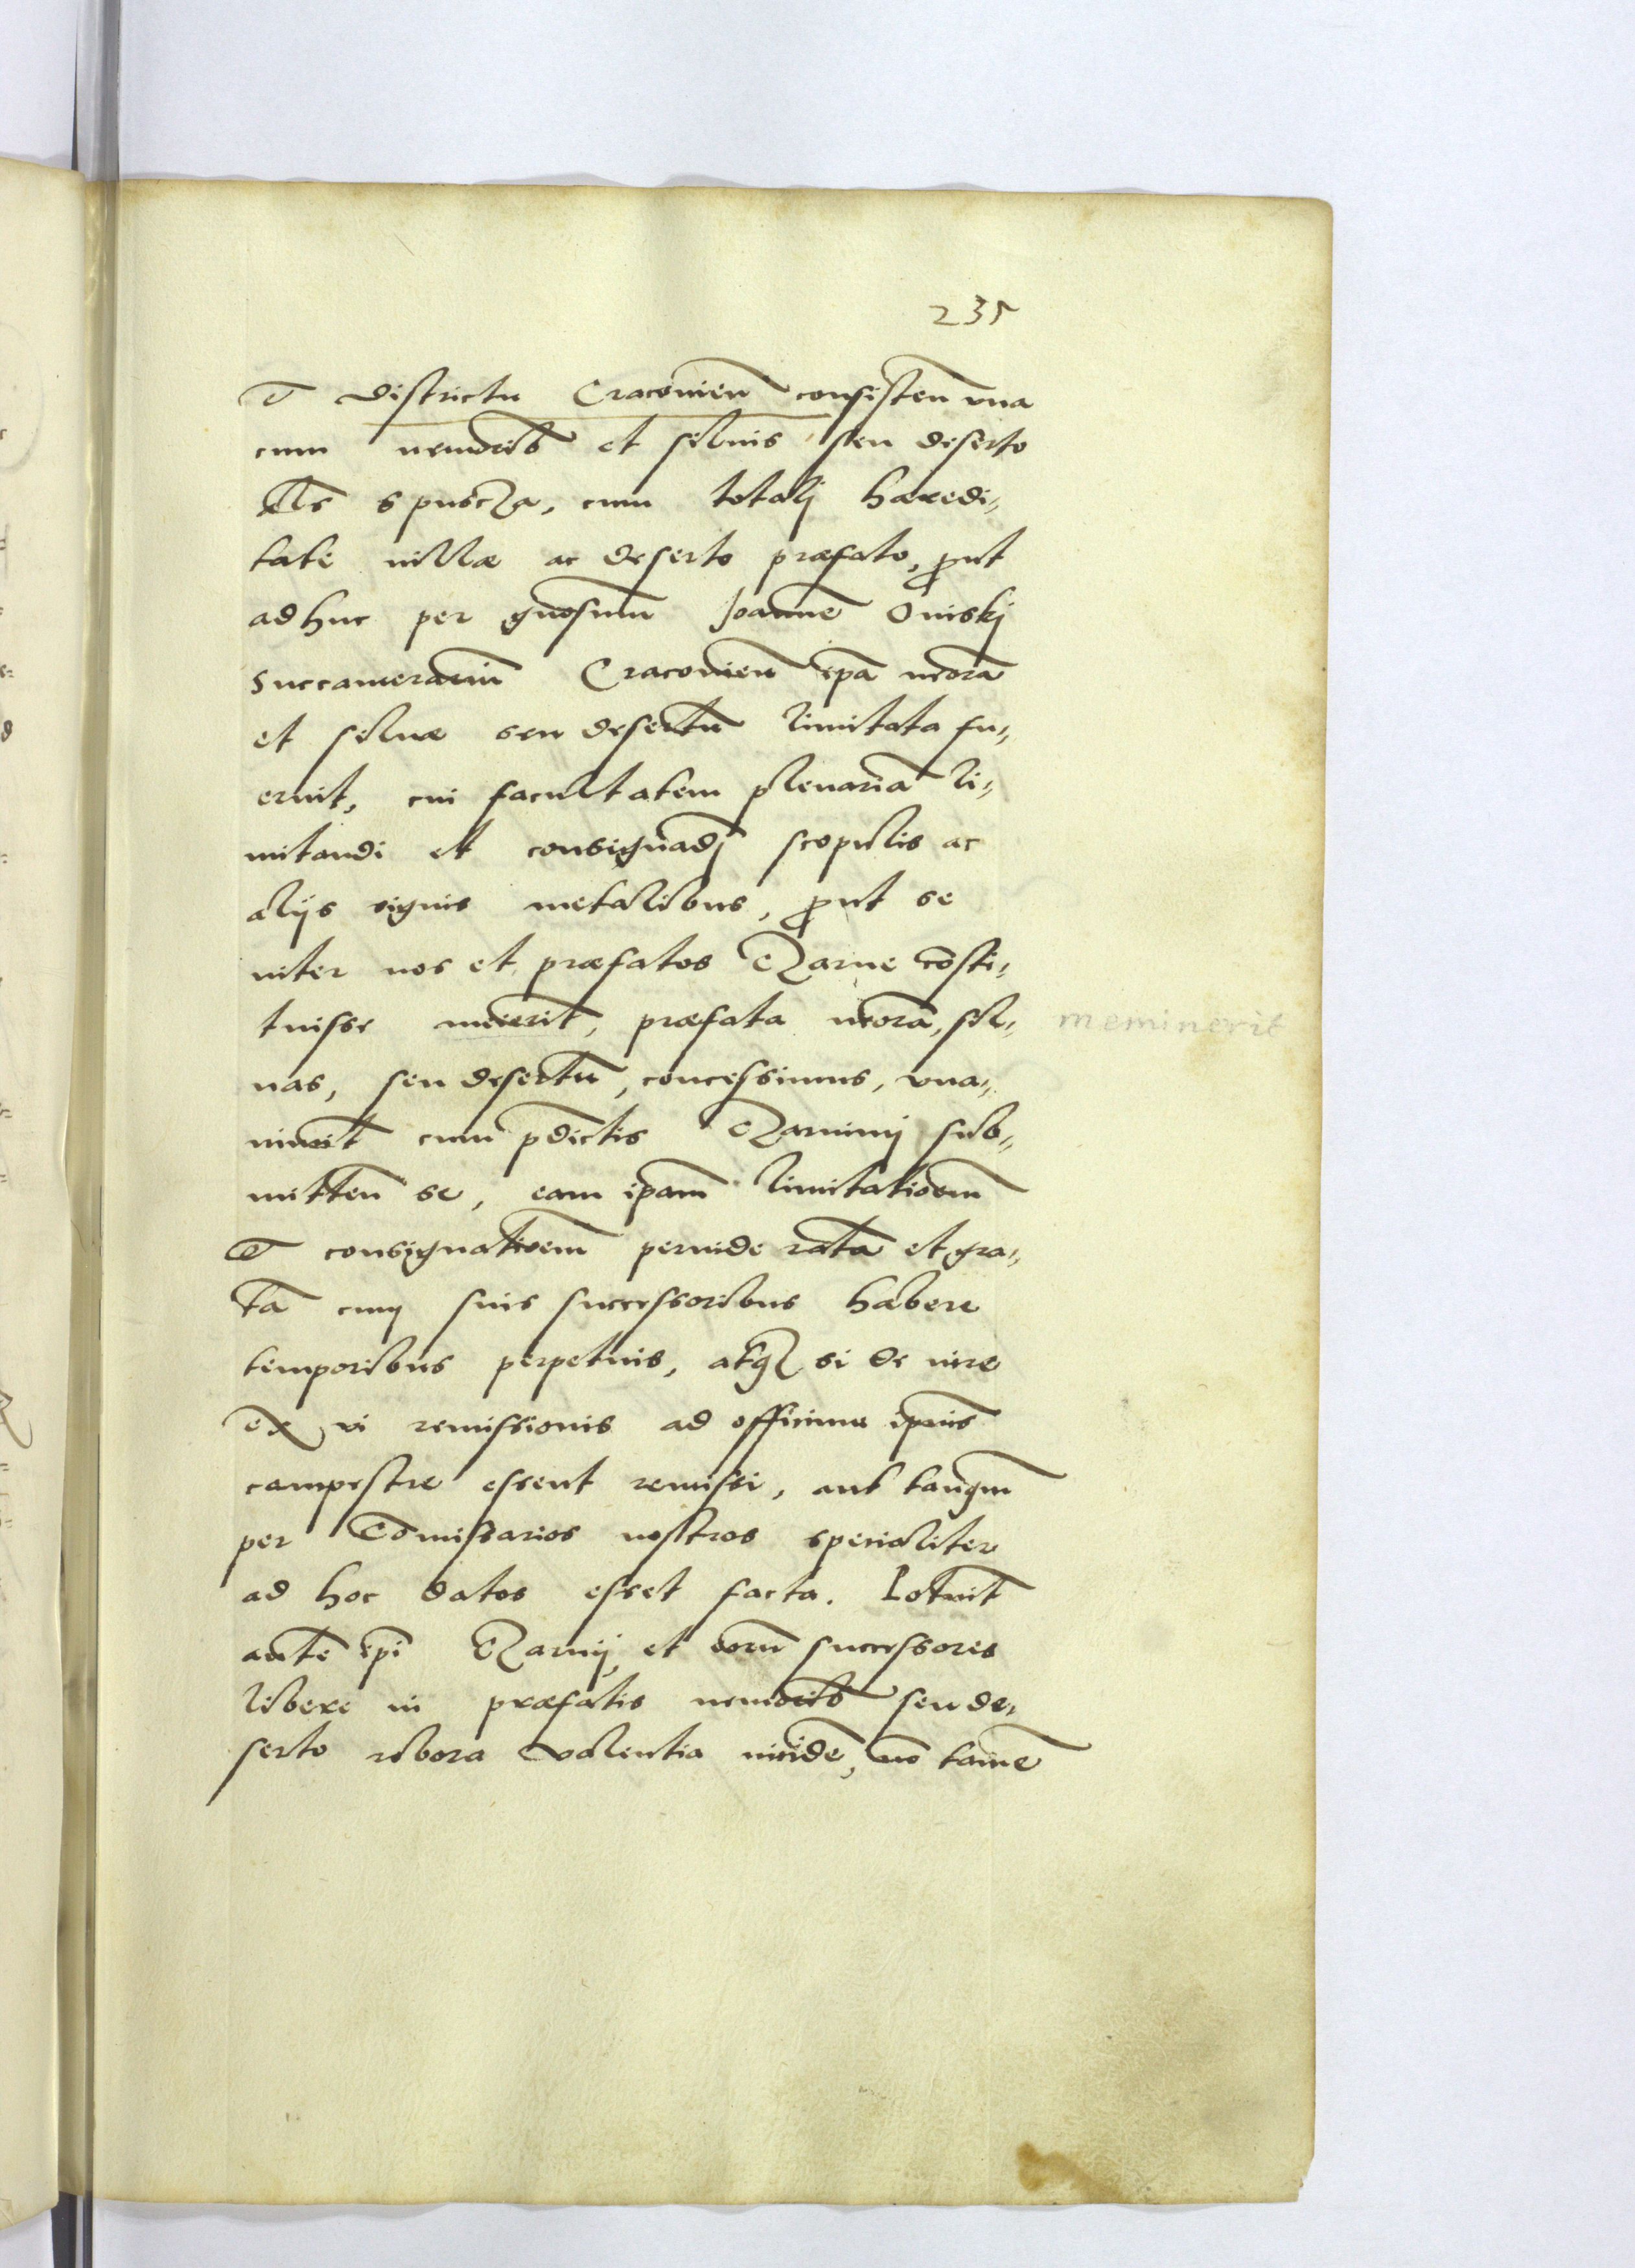 235
et districtu Cracovien̄ consisten̄ vna
cum nemorib et siluis seu deserto
als spuscza, cum totalj haeredi„
tate villae ac deserto praefato, prout
adhuc per gn̄osum Joannē Oviskj
Succamerariū Cracovien̄ ip̄a n̄mora
et siluae seu desertū limitata fu„
erint, cui facultatem plenariā li„
mitandi et consignādj scopulis ac
alijs signis metalibus, prout se
inter nos et praefatos Czarne cōsti„
tuisse mēierit, praefata n̄mora, sil„
uas, seu desertū, concessimus, vna„
nimit̄ cum p̄dictis Czarnimj sub„
mitten̄ se, eam ip̄am limitationem
et consignationem perinde ratā et gra„
tā cum suis successoribus habere
temporibus perpetuis, atq̄ si de iure
ex vi remissionis ad officium ip̄ius
campestre essent remissi, aut tanq̄m
per Cōmissarios nostros specialiter
ad hoc datos esset facta. Poterit
autē ip̄i Czarnij et eorū successores
libere in praefatis nemorib seu de„
serto robora valentia incidē, nō tamē
meminerit